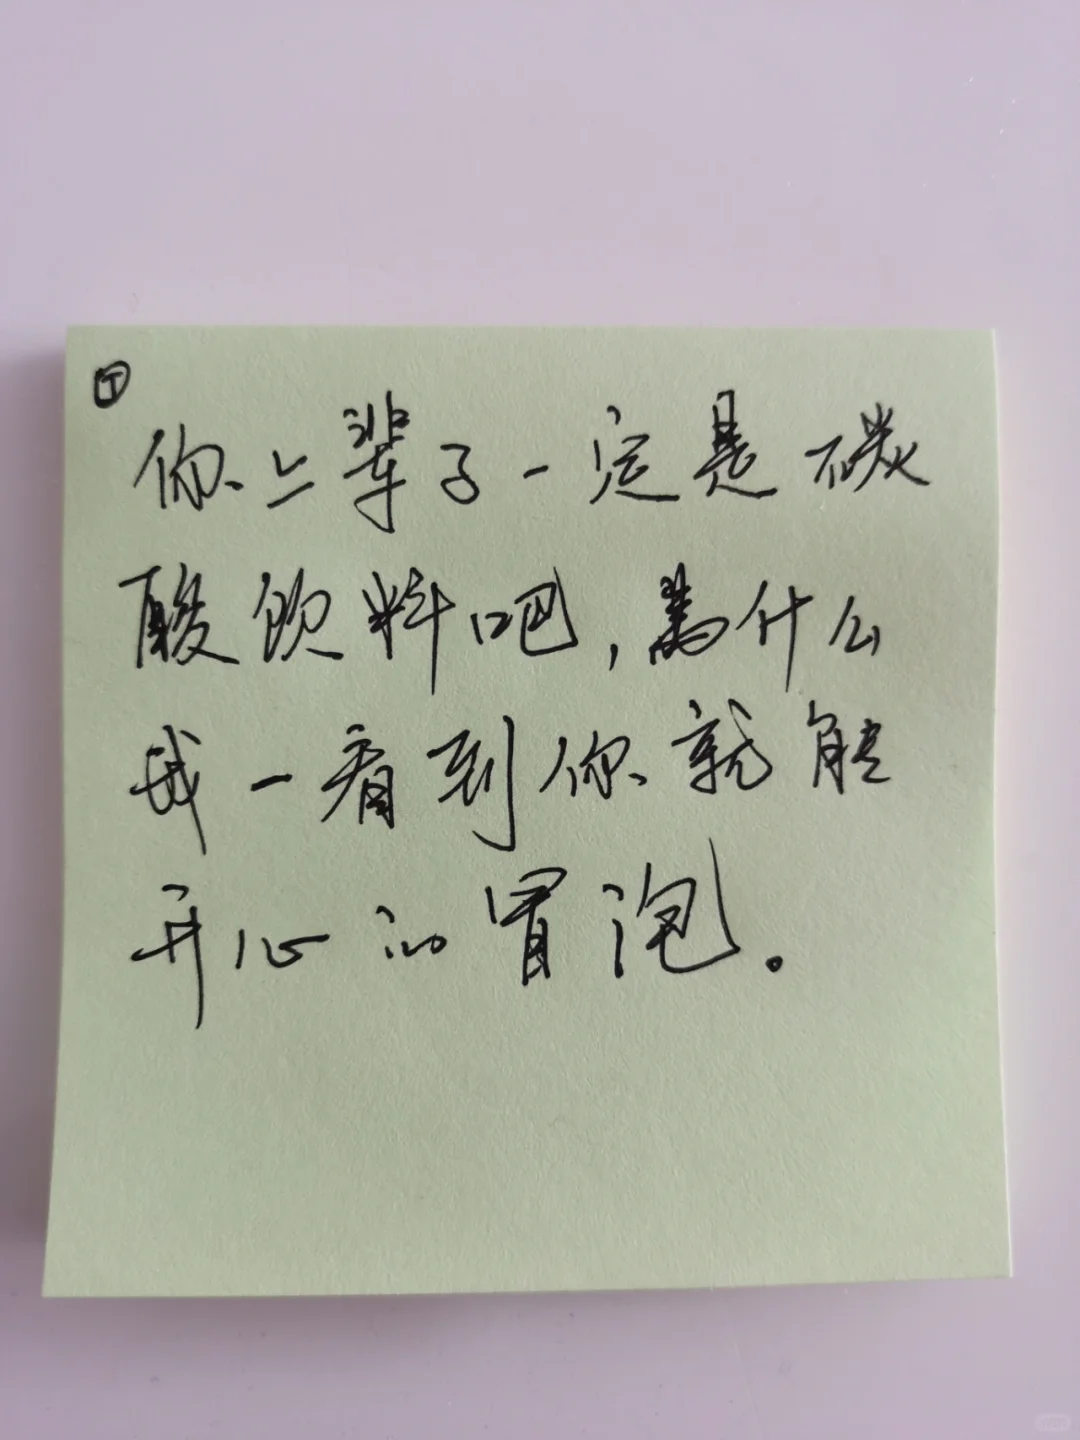 你上辈子一定是碳
酸饮料吧，為什么
我一看到你就能
开心的冒泡。